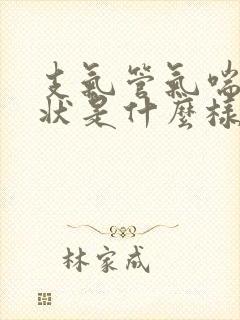 支氣管氣喘
狀是什麼樣
林家成